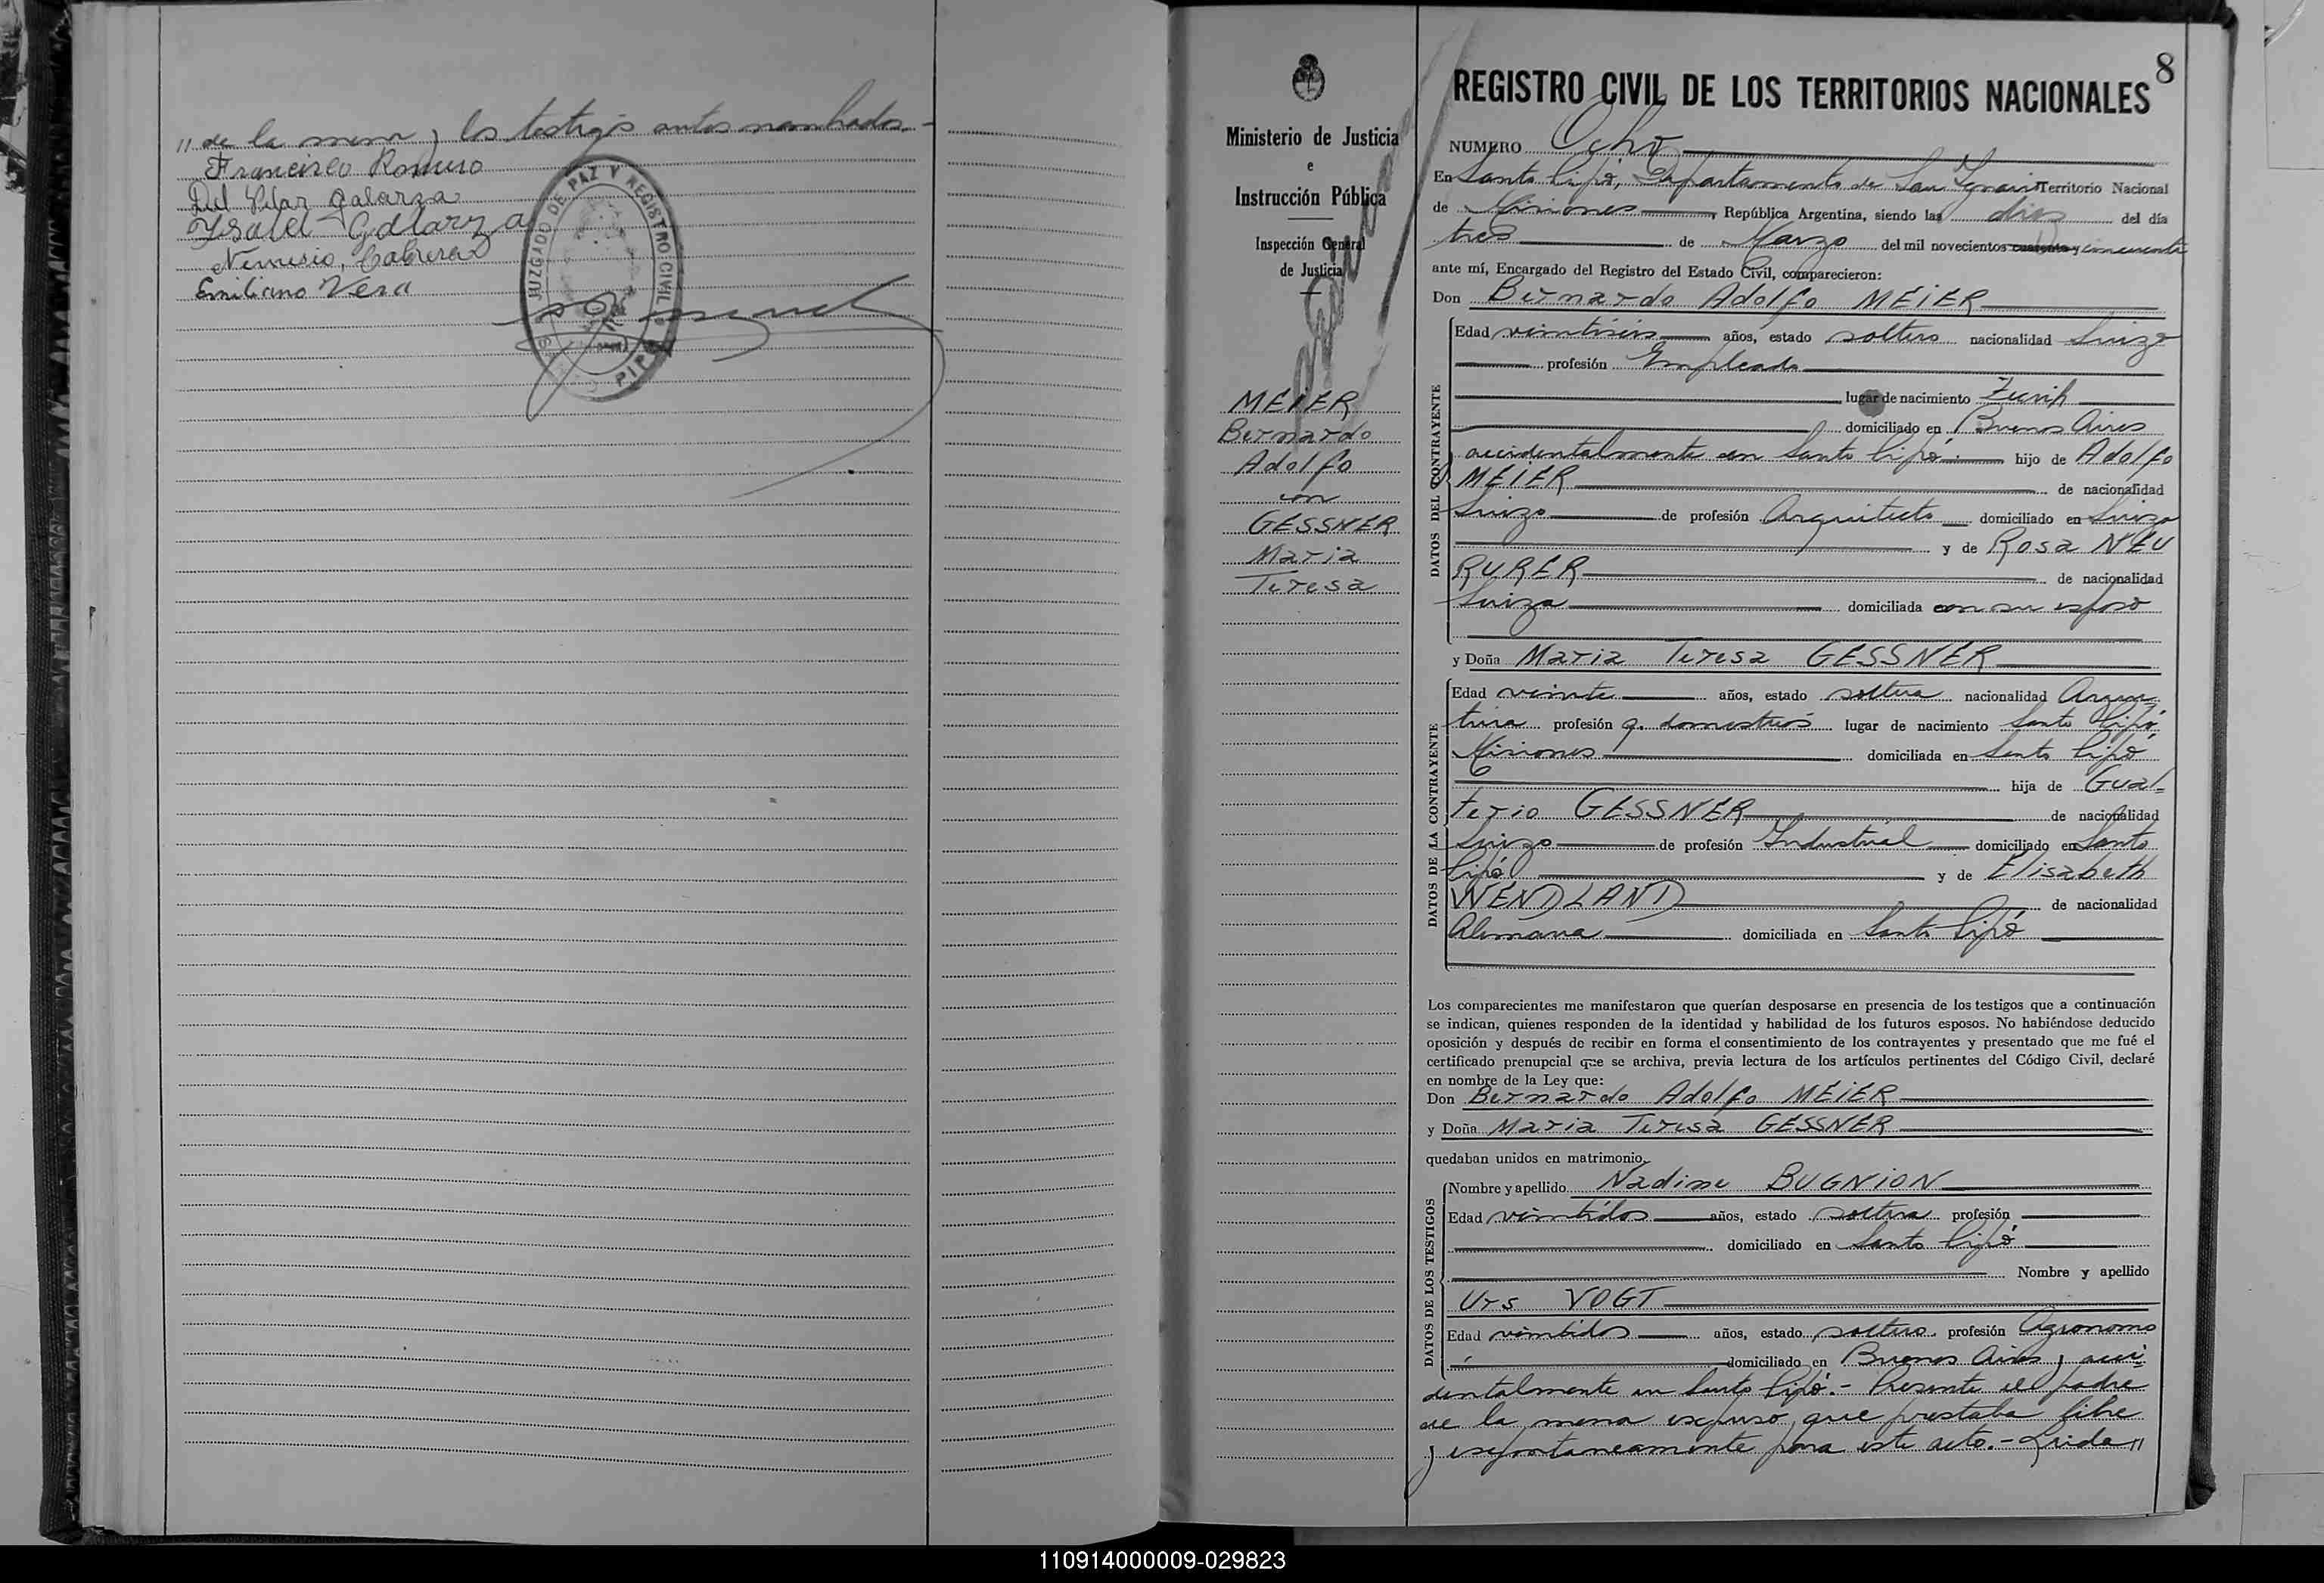 " de la menor y los testigos antes nombrados.-
Francisco Romero
Del Pilar Galarza
Ysabel Galarza
Nemesio Cabrera
Emiliano Vera
JUZGADO DE PAZ Y REGISTRO CIVIL
8
Ministerio de Justicia
e
Instrucción Pública
Inspección General
de Justicia
MEIER
Bernardo
Adolfo
con
GESSNER
Maria
Teresa
REGISTRO CIVIL DE LOS TERRITORIOS NACIONALES
NUMERO Ocho
En Santo Pipó, Departamento de San Ygnacio Territorio Nacional
de Misiones, República Argentina, siendo las diez del día
tres de Marzo del mil novecientos cuarenta y cincuenta
ante mí, Encargado del Registro del Estado Civil, comparecieron:
Don Bernardo Adolfo MEIER
DATOS DEL CONTRAYENTE
Edad veintiseis años, estado soltero nacionalidad Suizo
profesión Empleado
lugar de nacimiento Zurih
domiciliado en Buenos Aires
accidentalmente en Santo Pipó.- hijo de Adolfo
MEIER de nacionalidad
Suizo de profesión Arquitecto domiciliado en Suiza
y de Rosa NEU
RURER de nacionalidad
Suiza domiciliada con su esposo
y Doña Maria Teresa GESSNER
DATOS DE LA CONTRAYENTE
Edad veinte años, estado soltera nacionalidad Argen-
tina profesión q. domesticos lugar de nacimiento Santo Pipó,
Misiones domiciliada en Santo Pipó
hija de Gual-
terio GESSNER de nacionalidad
Suizo de profesión Industrial domiciliado en Santo
Pipó y de Elisabeth
WENDLAND de nacionalidad
Alemana domiciliada en Santo Pipó
Los comparecientes me manifestaron que querían desposarse en presencia de los testigos que a continuación
se indican, quienes responden de la identidad y habilidad de los futuros esposos. No habiéndose deducido
oposición y después de recibir en forma el consentimiento de los contrayentes y presentado que me fué el
certificado prenupcial que se archiva, previa lectura de los artículos pertinentes del Código Civil, declaré
en nombre de la Ley que:
Don Bernardo Adolfo MEIER
y Doña Maria Teresa GESSNER
quedaban unidos en matrimonio.
DATOS DE LOS TESTIGOS
Nombre y apellido Nadine BUGNION
Edad veintidos años, estado soltera profesión
domiciliado en Santo Pipó
Nombre y apellido
Urs VOGT
Edad veintidos años, estado soltero. profesión Agronomo
domiciliado en Buenos Aires y acci-
dentalmente en Santo Pipó.- Presente el padre
de la menor expuso que prestaba libre
y espontaneamente para este acto.- Leida "
110914000009-029823